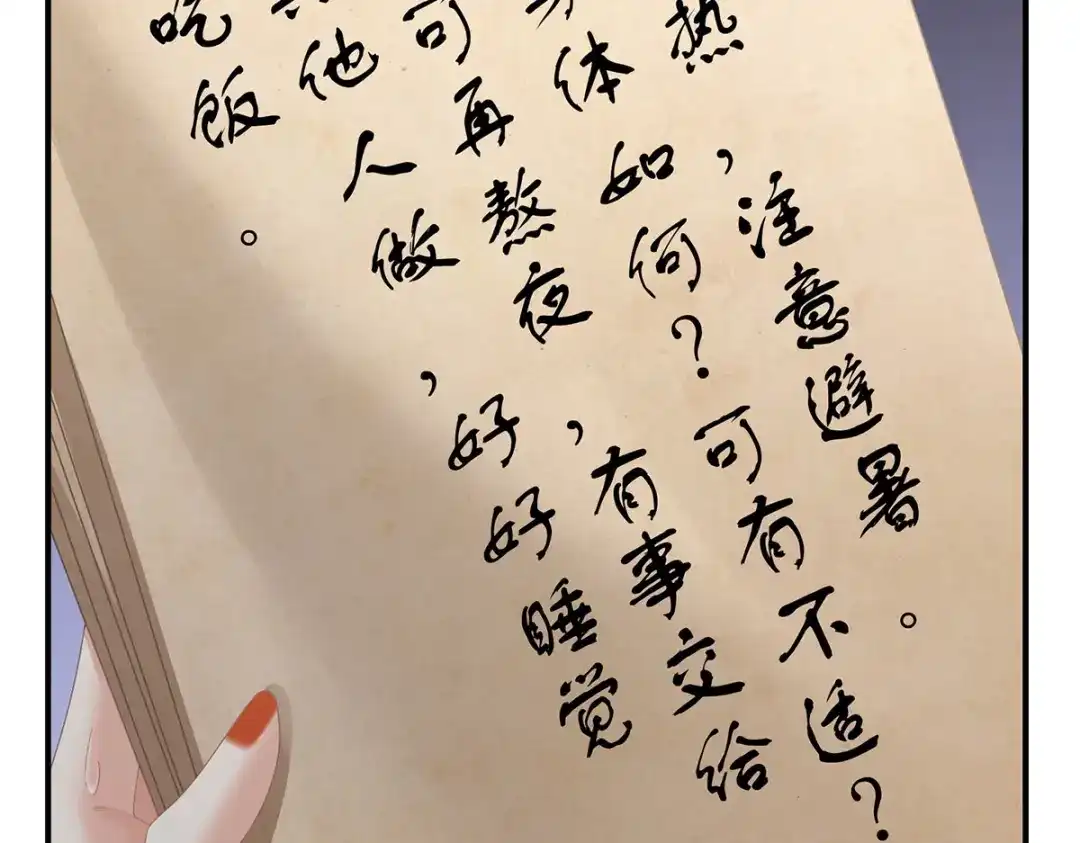 热，注意避暑。
体如何？可有不适？
可再熬夜，有事交给
他人做，好好睡觉
吃饭。